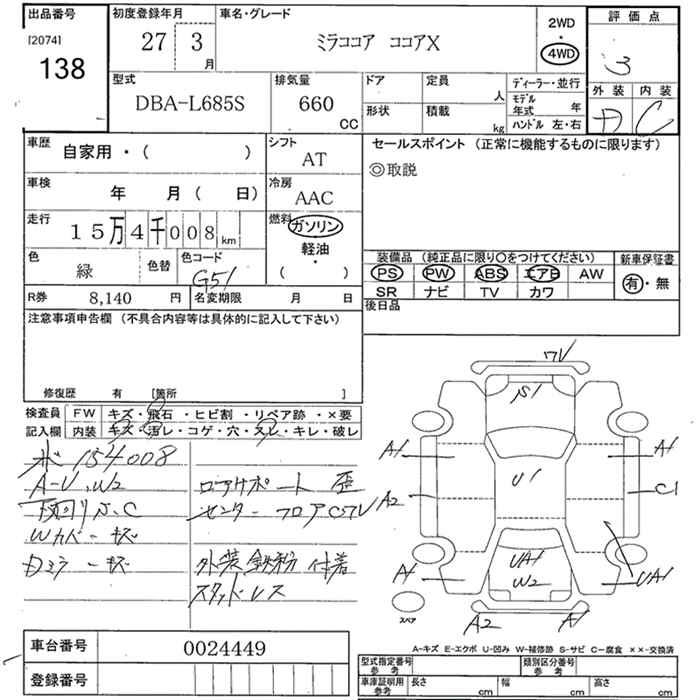 出品番号
[2074]
138
初度登録年月
27 3
月
車名・グレード
ミラココア ココアX
2WD
・
4WD
評価点
3
外装 内装
D C
型式
DBA-L685S
排気量
660
CC
ドア
形状
定員
人
積載
kg
ディーラー・並行
モデル
年式 年
ハンドル 左・右
車歴
自家用・( )
シフト
AT
車検
年 月( 日)
冷房
AAC
走行
15万4千008km
燃料
ガソリン
軽油
・
( )
色
緑
色替
色コード
G51
R券 8,140 円
名変期限 月 日
セールスポイント (正常に機能するものに限ります)
◎取説
装備品 (純正品に限り○をつけてください)
PS PW ABS エアB AW
SR ナビ TV カワ
新車保証書
有・無
後日品
注意事項申告欄 (不具合内容等は具体的に記入して下さい)
修復歴 有 [箇所 ]
検査員
記入欄
FW キズ・飛石・ヒビ割・リペア跡・×要
内装 キズ・汚レ・コゲ・穴・スレ・キレ・破レ
メ 154008
A-U.W2
下廻りS.C
Wカバーキズ
Dミラーキズ
ロアサポート歪
センターフロアCワレ
外装鉄粉付着
スタッドレス
ワレ
S1
A1
A1
U1
A2
C1
A1
UA1
W2
UA1
スペア
A2
A1
A-キズ E-エクボ U-凹み W-補修跡 S-サビ C-腐食 ××-交換済
車台番号 0024449
登録番号
型式指定番号
参考
類別区分番号
参考
車庫証明用
参考
長さ cm
幅 cm
高さ cm